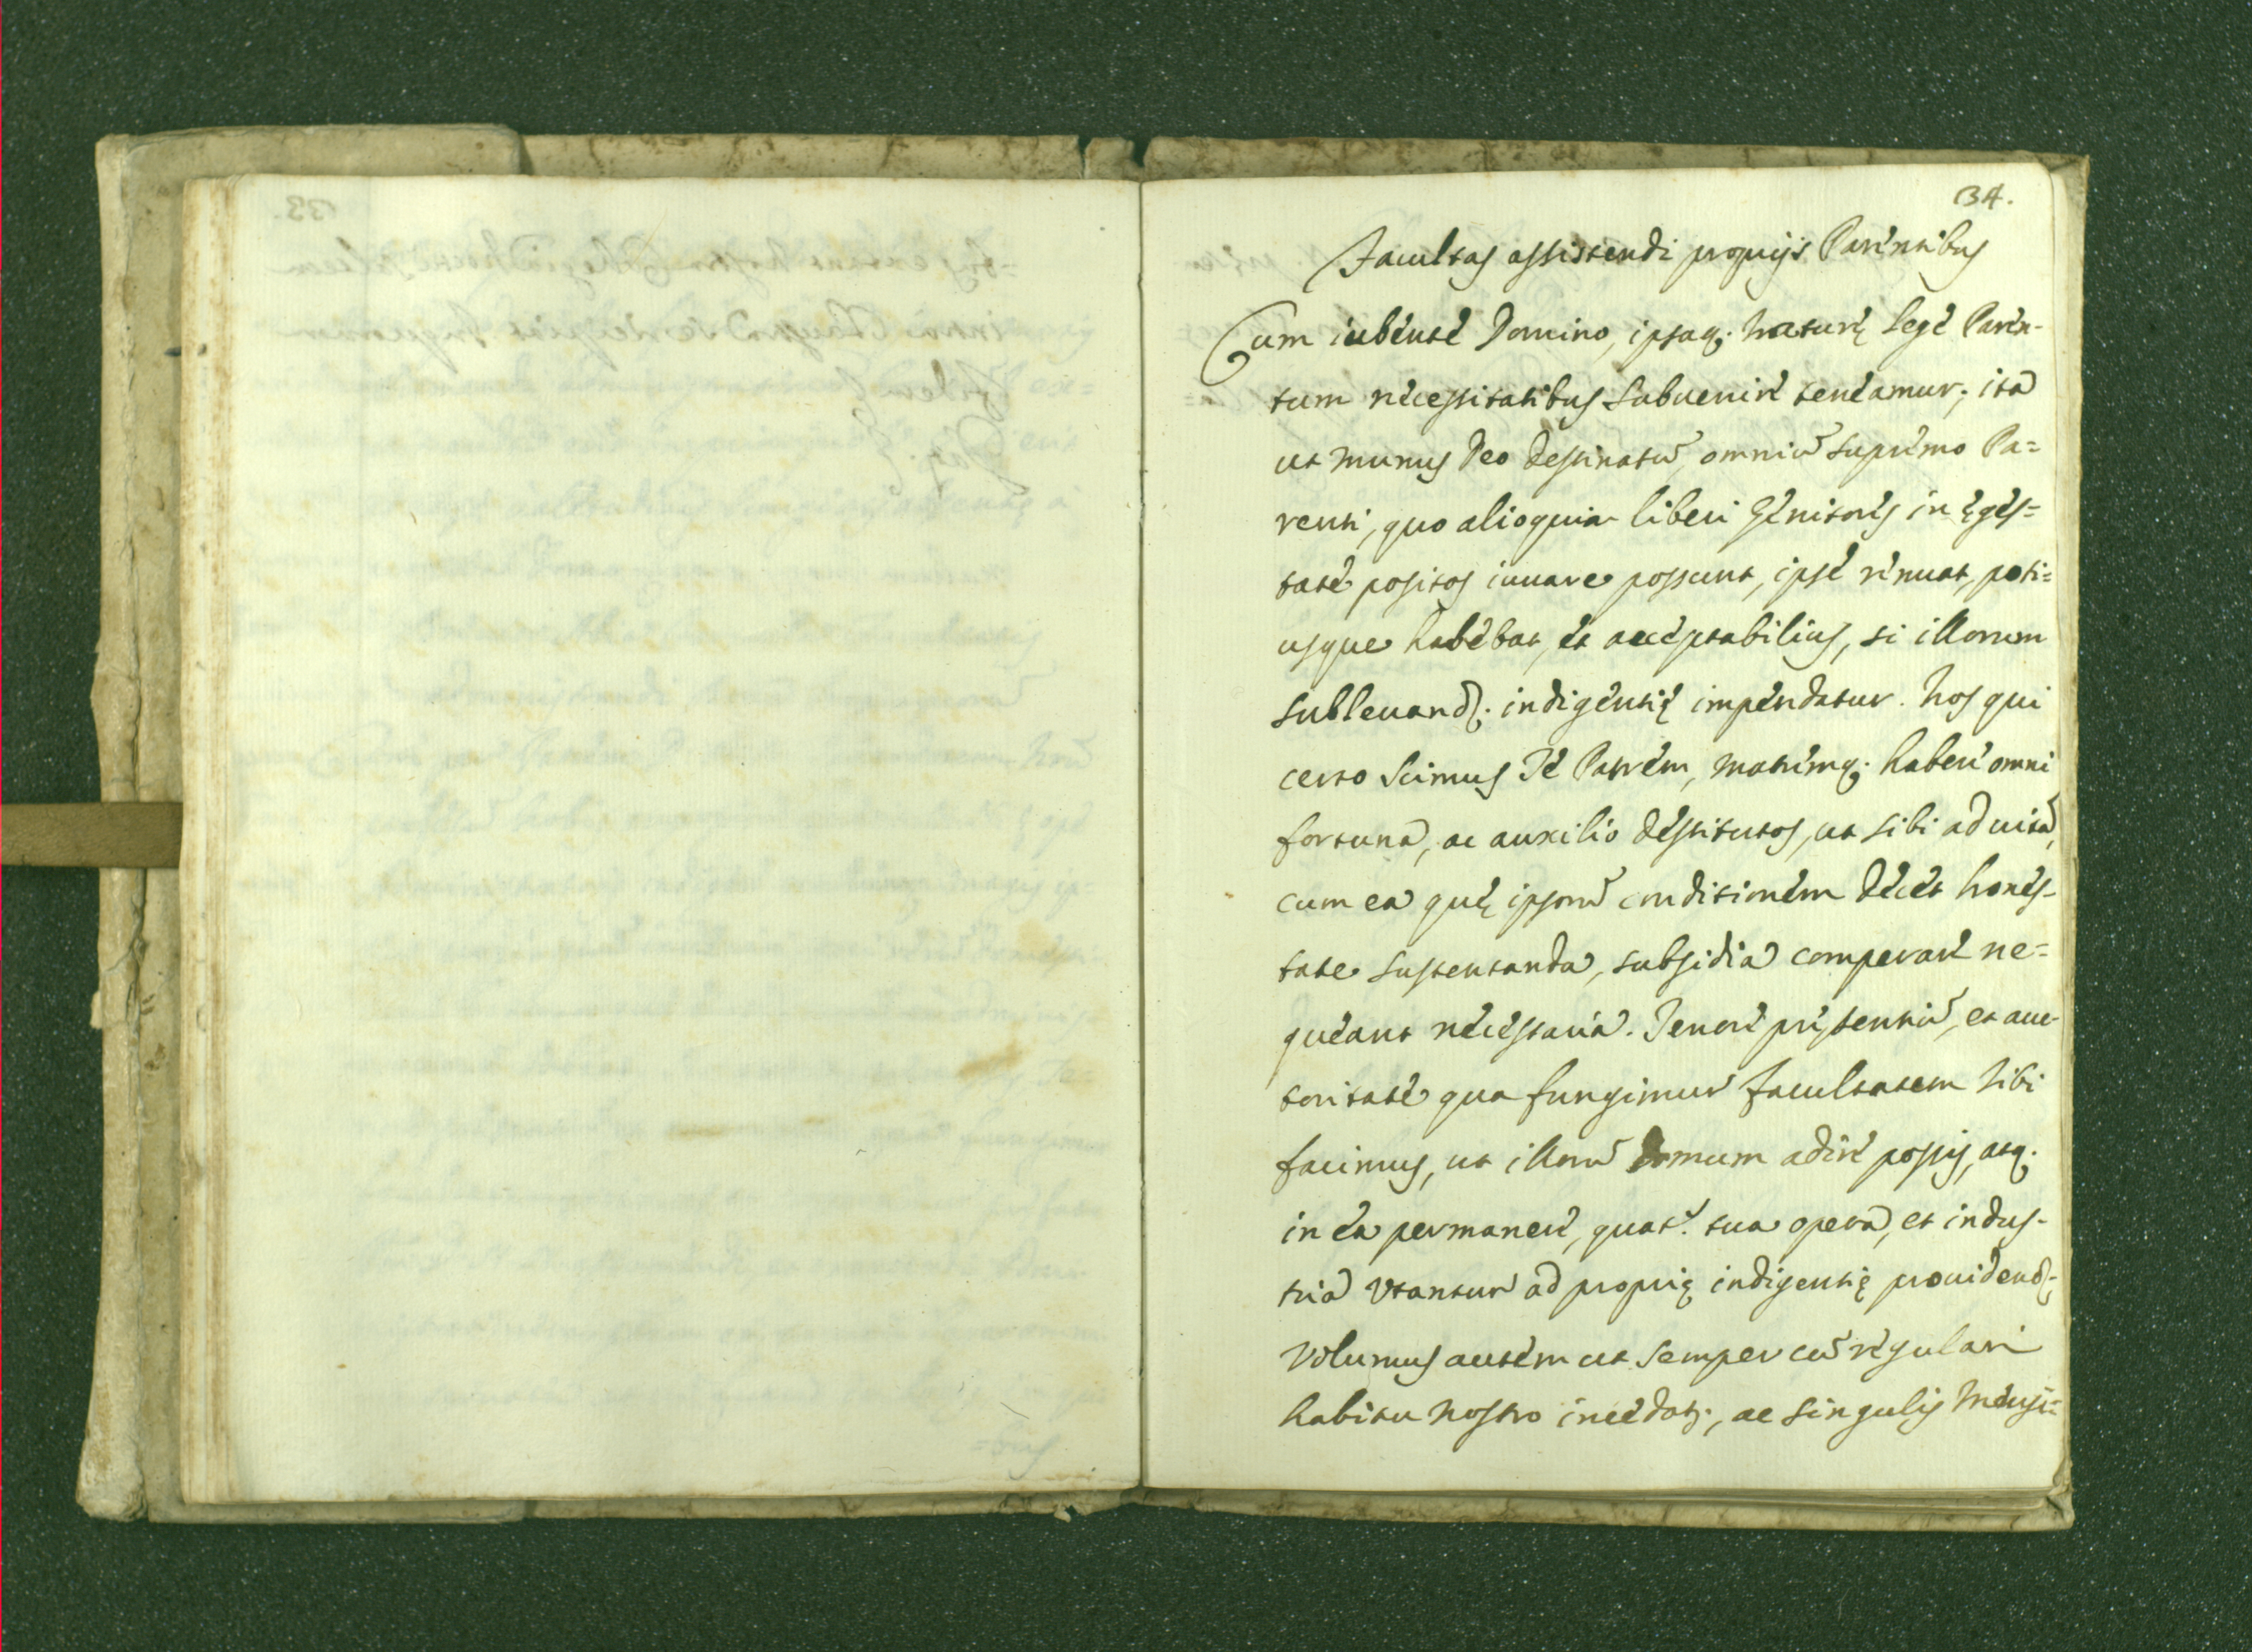 34.
Facultas assistendi proprijs Parentibus
Cum iubente Domino, ipsaq; naturę lege Paren-
tum necessitatibus subuenire teneamur; ita
ut munus Deo destinatū, omniū supremo Pa=
renti, quo alioquin liberi genitores in ęges=
tate positos iuuare possunt, ipse renuat, poti=
usque habebat, et acceptabilius, si illorum
subleuandę indigentię impendatur. Nos qui
certo scimus Te Patrem, matremq; habere omni
fortuna, ac auxilio destitutos, ut sibi ad uitā,
cum ea quę ipsorū conditionem decet hones-
tate sustentanda, subsidia comperare ne=
queant necessaria. Tenore pręsentiū, et auc-
toritate qua fungimur facultatem tibi
facimus, ut illorū domum adire possis, atq;
in ea permanere, quat.s tua opera, et indus-
tria utantur ad proprię indigentię prouidendę
Volumus autem ut semper cū regulari
habitu nostro incedat;, ac singulis mensi=